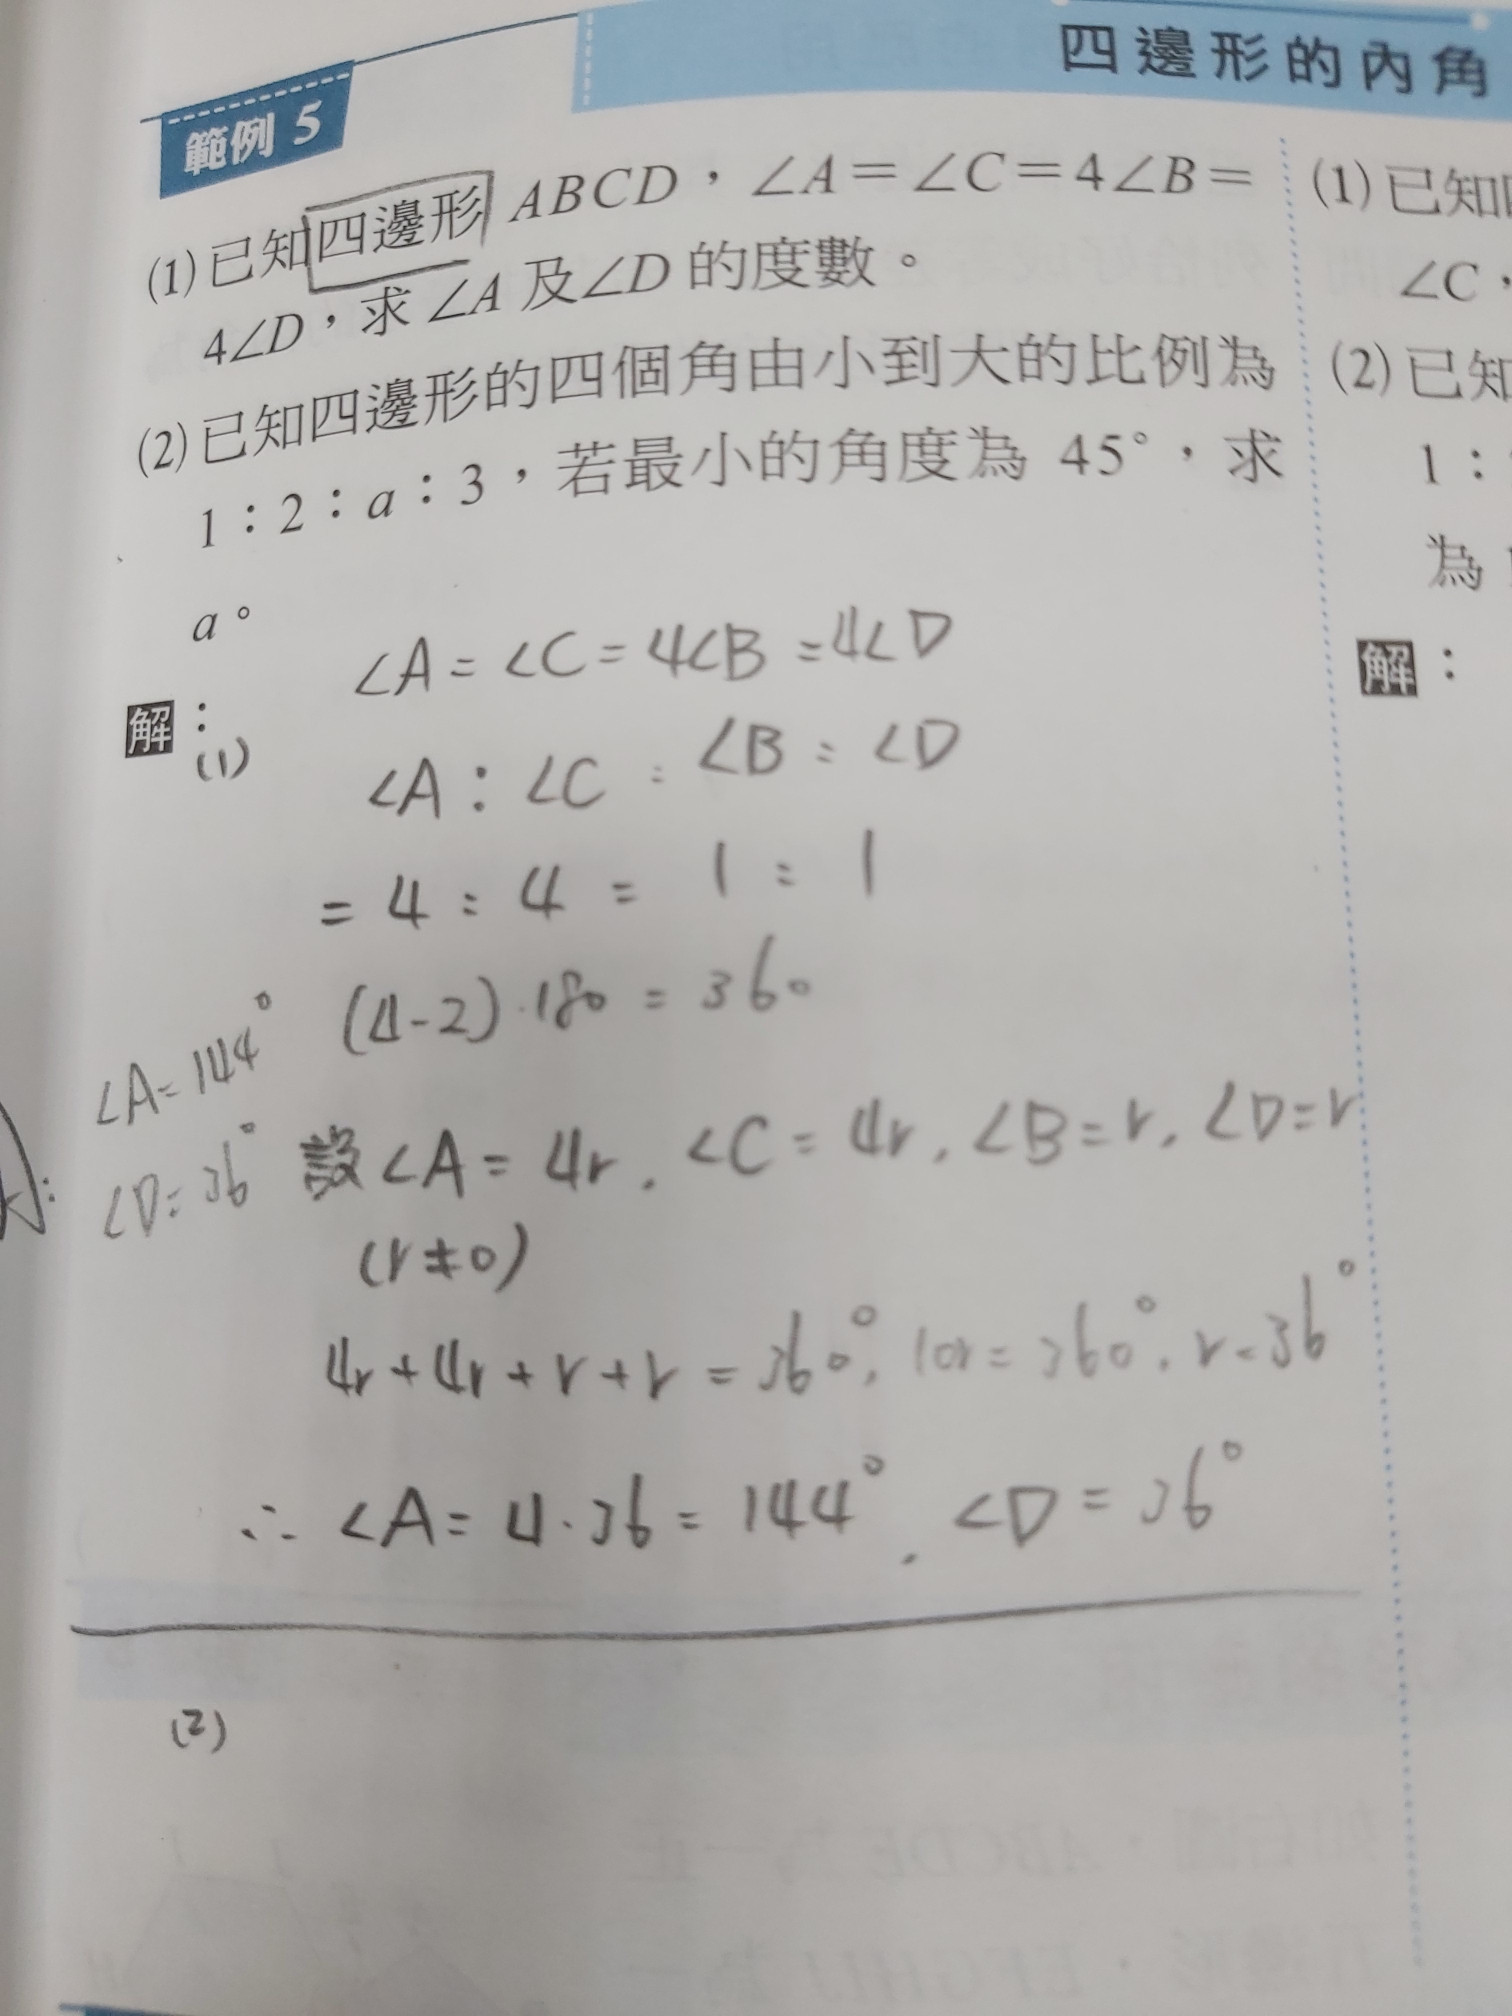 四邊形的內角
範例 5
(1)已知四邊形 ABCD，∠A＝∠C＝4∠B＝
4∠D，求∠A 及∠D 的度數。
(2)已知四邊形的四個角由小到大的比例為
1：2：a：3，若最小的角度為 45°，求
a。
解：
(1)
∠A = ∠C = 4∠B = 4∠D
∠A : ∠C : ∠B : ∠D
= 4 : 4 = 1 : 1
(4-2)·180 = 360
∠A = 144°
∠D = 36°
設∠A = 4r, ∠C = 4r, ∠B = r, ∠D = r
(r≠0)
4r + 4r + r + r = 360°, 10r = 360°, r = 36°
∴ ∠A = 4·36 = 144°, ∠D = 36°
(2)
(1)已知
∠C，
(2)已知
1：
為
解：